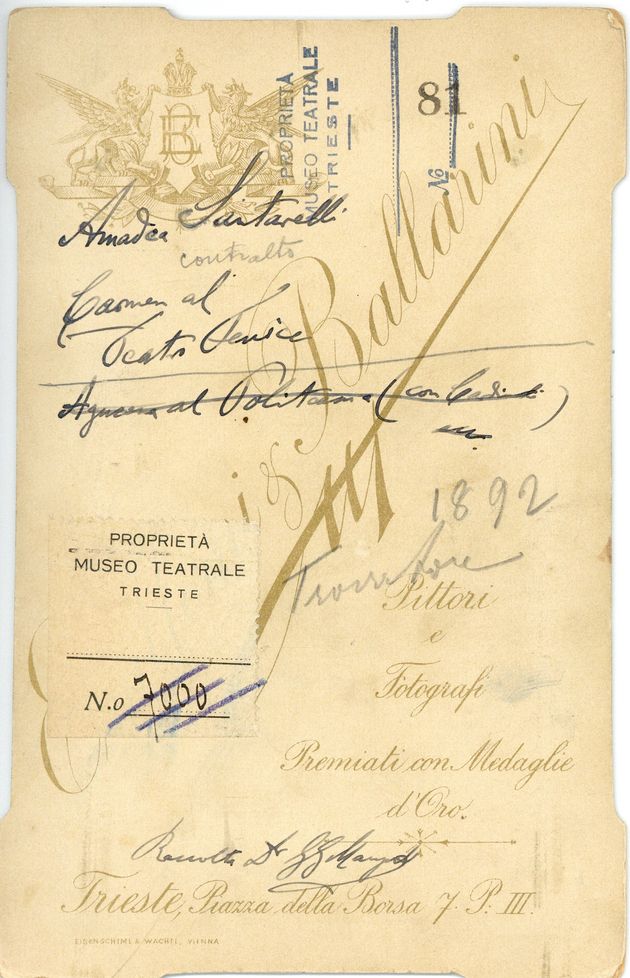 PROPRIETÀ
MUSEO TEATRALE
TRIESTE
No 81
Amadea Santarelli
contralto
Carmen al
Teatro Fenice
al Politeama (con
1892
Trovatore
& Ballarini
PROPRIETÀ
MUSEO TEATRALE
TRIESTE
N.o 7000
Pittori
e
Fotografi
Premiati con Medaglie
d'Oro.
Raccolta Dr
Trieste, Piazza della Borsa 7. P. III.
EISENSCHIML & WACHTL, VIENNA